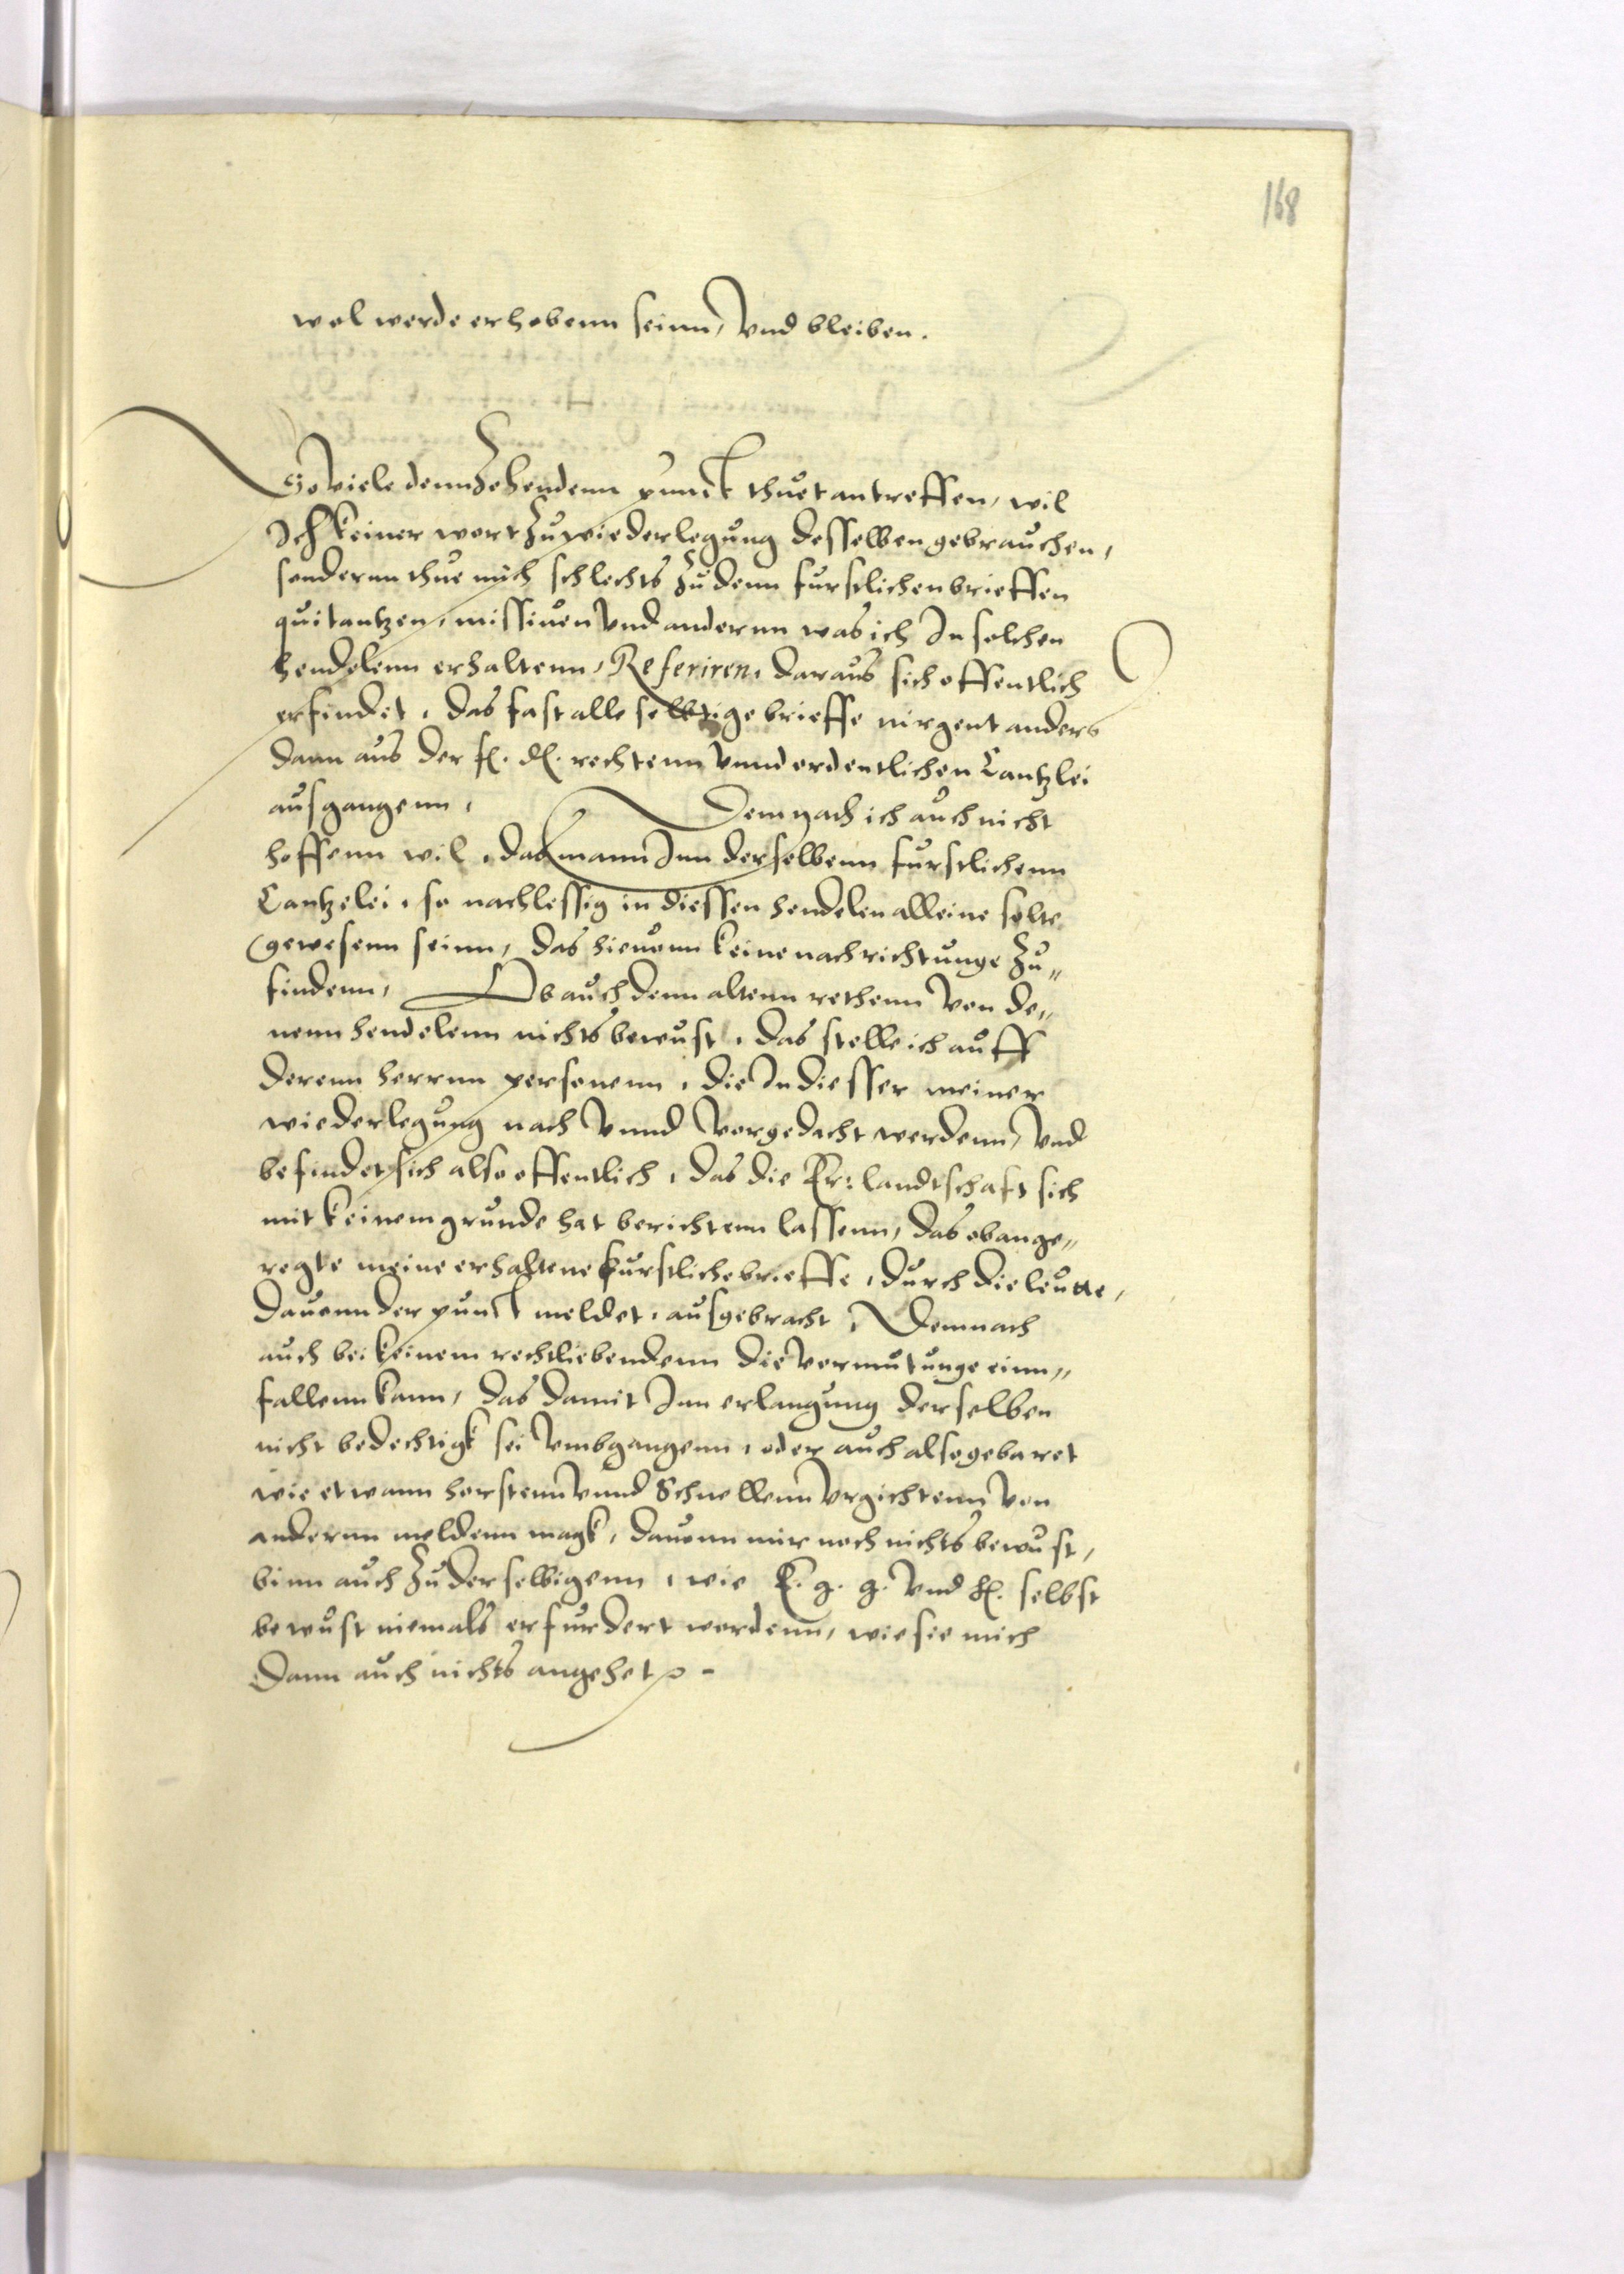 168
wol werde erhobenn seinn, vnd bleiben.
So viele denn Zehendenn punct thuet antreffen, wil
Ich keiner wort Zu wiederlegung desselben gebrauchen,
sondernn thue mich schlechts Zu denn furstlichen brieffen
quitantzen, missiuen vnd andernn was ich In solchen
hendelenn erhaltenn, Referiren, daraus sich offentlich
erfindet, das fast alle selbtige brieffe nirgent anders
dann aus der f. d. rechtenn vnnd ordentlichen Cantzlei
ausgangenn, Demnach ich auch nicht
hoffenn wil, das mann Inn derselbenn furstlichenn
Cantzelei, so nachlessig in diessen hendelen alleine solte
gewesenn seinn, das hieuonn keine nachrichtunge Zu„
findenn, Ob auch denn altenn rethenn von de„
nenn hendelenn nichts bewust, das stelle ich auff
derenn herrnn personenn, die In diesser meiner
wiederlegung nach vnnd vorgedacht werdenn, vnd
befindet sich also offentlich, das die Er: landtschaft sich
mit keinem grunde hat berichtenn lassenn, das obange„
regte meine erhaltene furstliche brieffe, durch die leutte,
dauonn der punct meldet, ausgebracht, Demnach
auch bei keinem rechtliebendenn die vermutunge einn„
fallenn kann, das damit Inn erlangung derselben
nicht bedechtigk sei vmbgangenn, oder auch also gebaret
wie etwann horstenn vnnd Schnellenn vrgichtenn von
andernn meldenn magk, dauonn mir noch nichts bewust,
binn auch Zu derselbigenn, wie E. g. g. vnd h. selbst
bewust niemals erfurdert wordenn, wie sie mich
dann auch nichts angehet